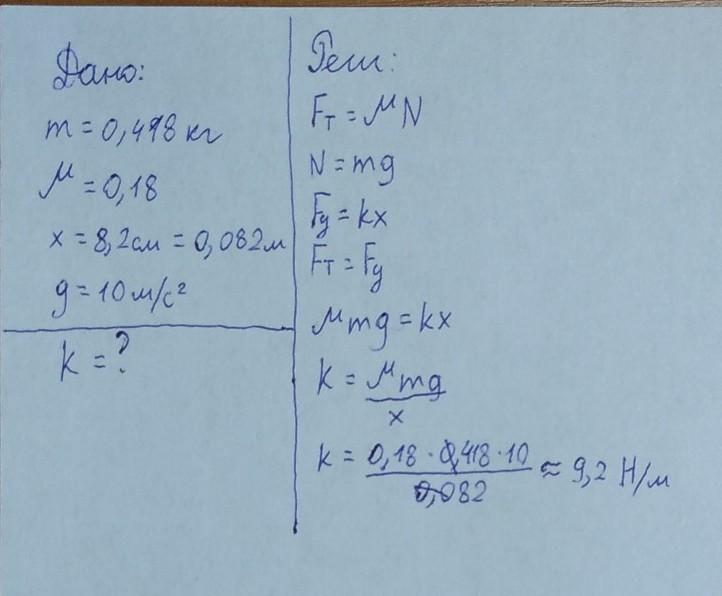 Дано:
m = 0,418 кг
μ = 0,18
x = 8,2 см = 0,082 м
g = 10 м/с²
k = ?
Реш:
Fт = μN
N = mg
Fy = kx
Fт = Fy
μmg = kx
k = μmg / x
k = 0,18 · 0,418 · 10 / 0,082 ≈ 9,2 Н/м